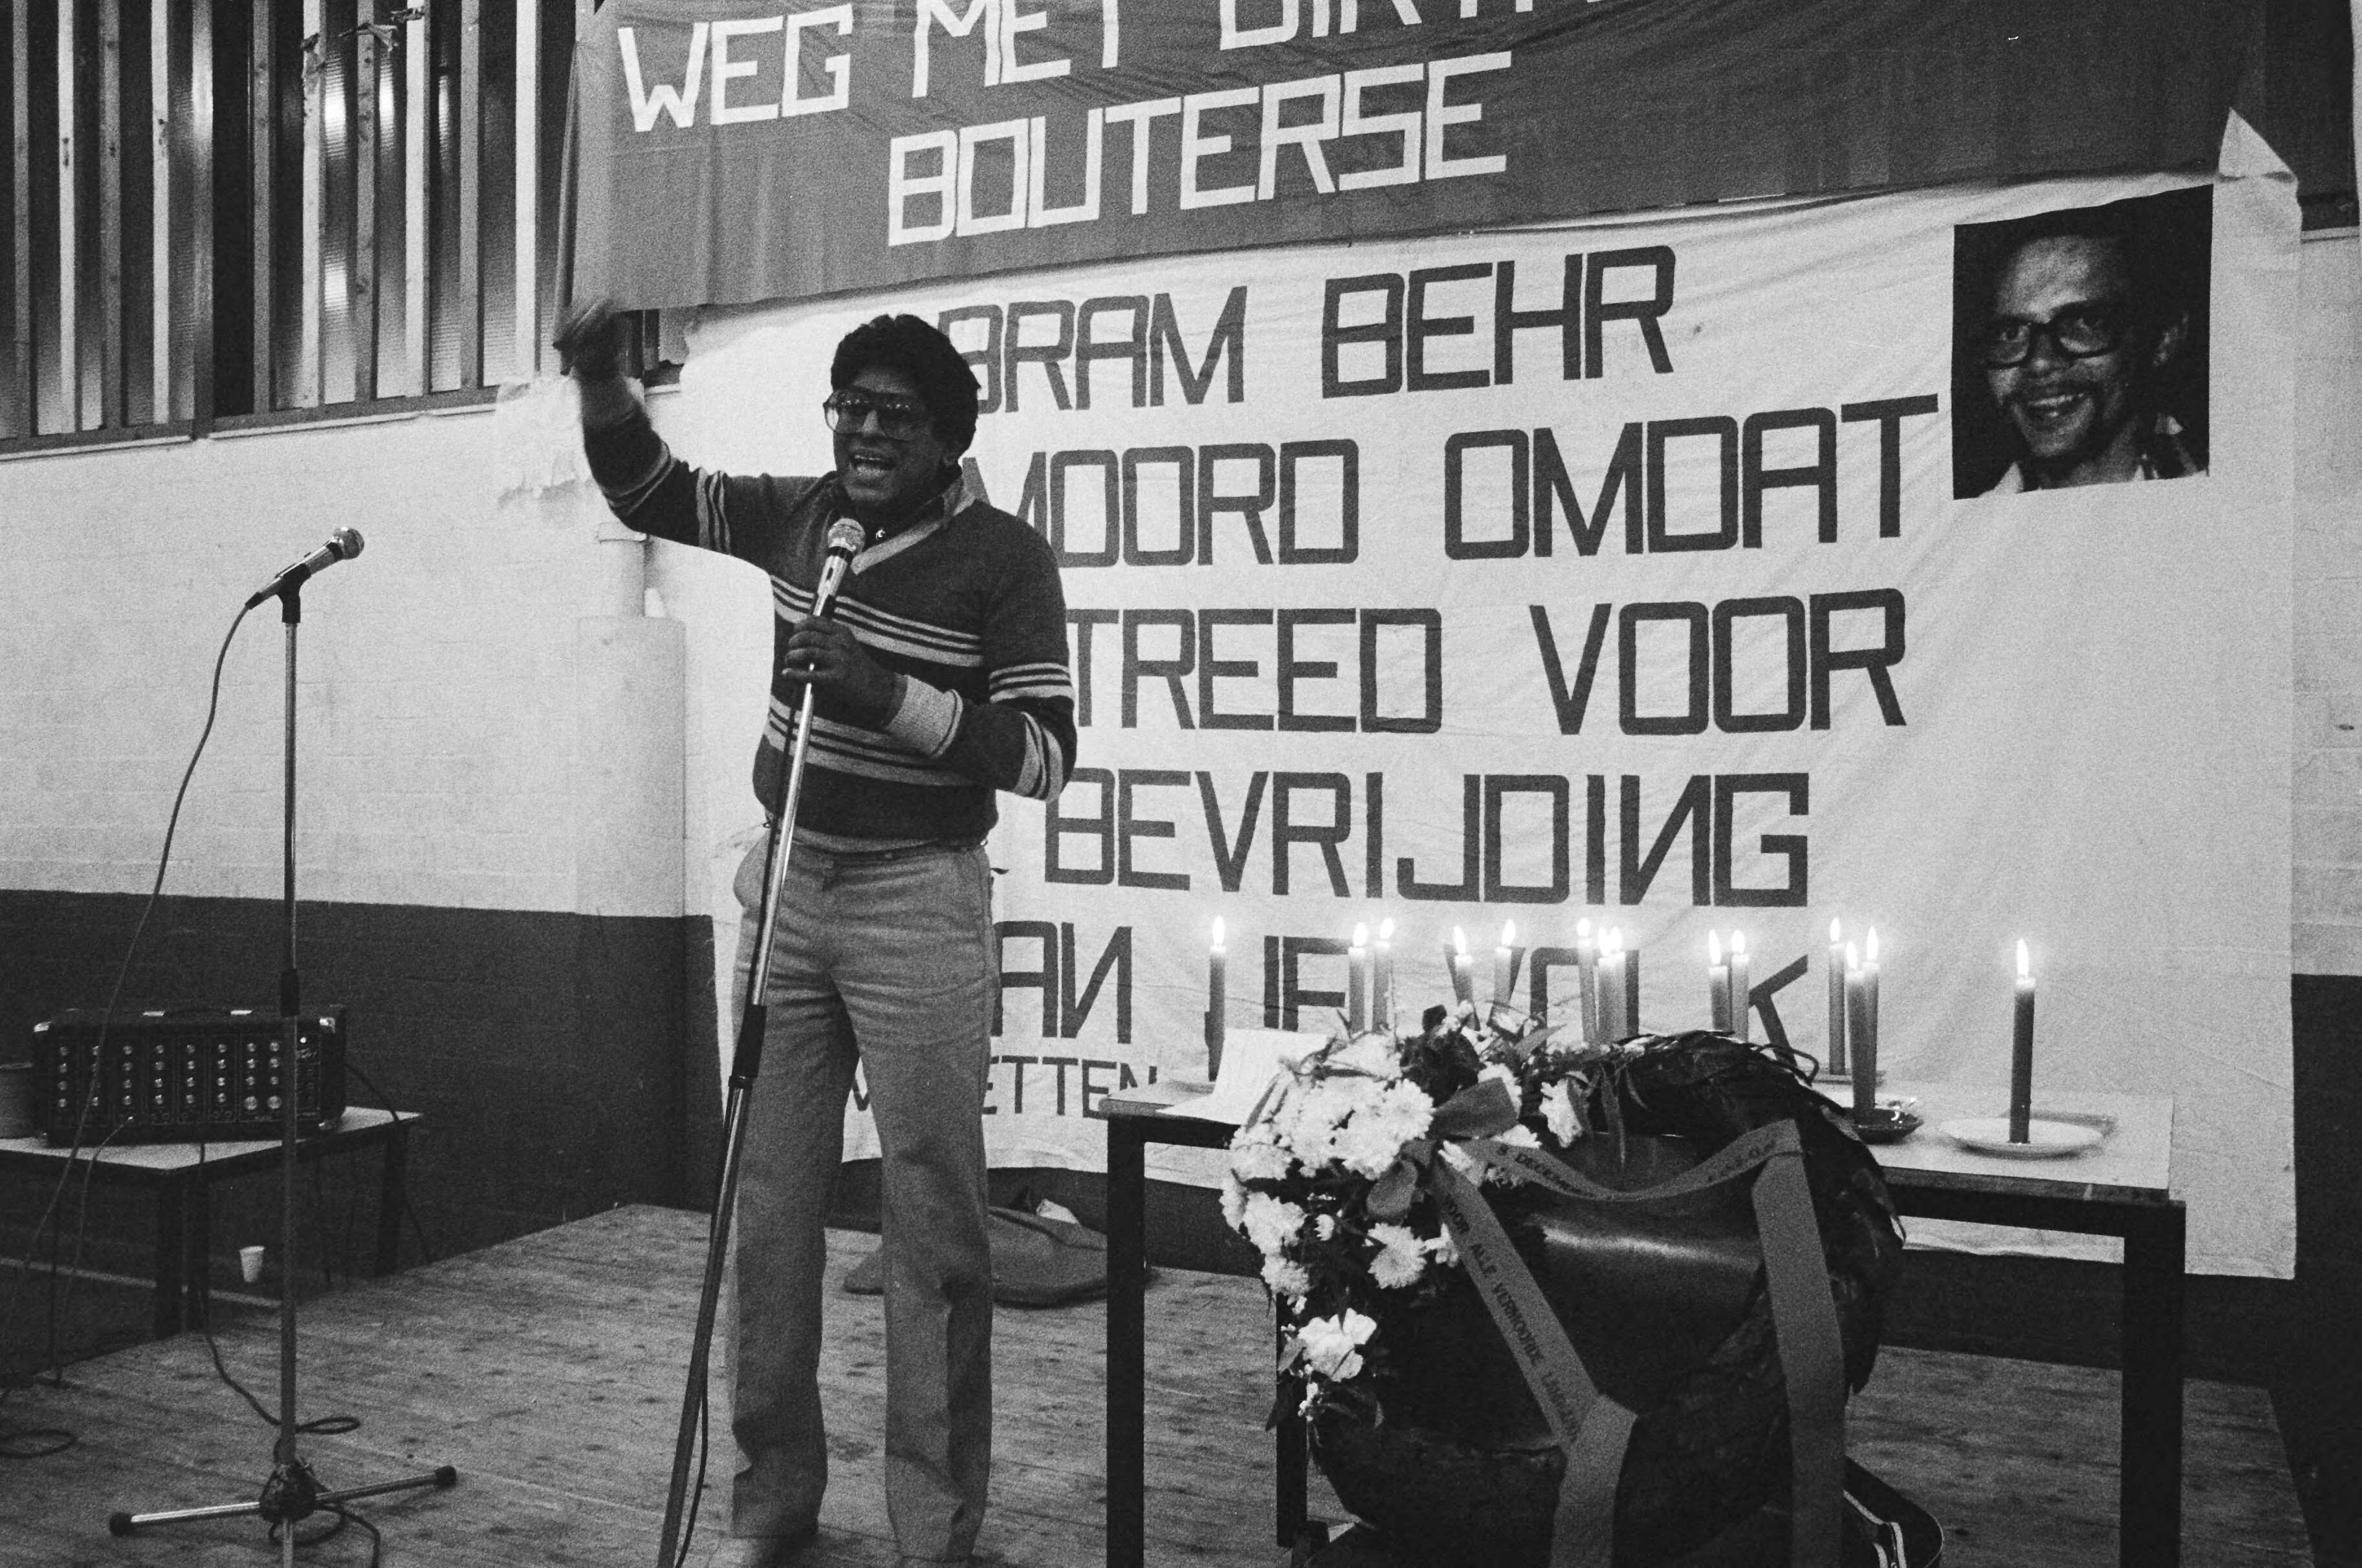 WEG MET
BOUTERSE
BRAM BEHR
MOORD OMDAT
TREED VOOR
BEVRIJDING
AN JE VOLK
ETTEN
8 DECEMBER
VOOR ALLE VERMOORDE